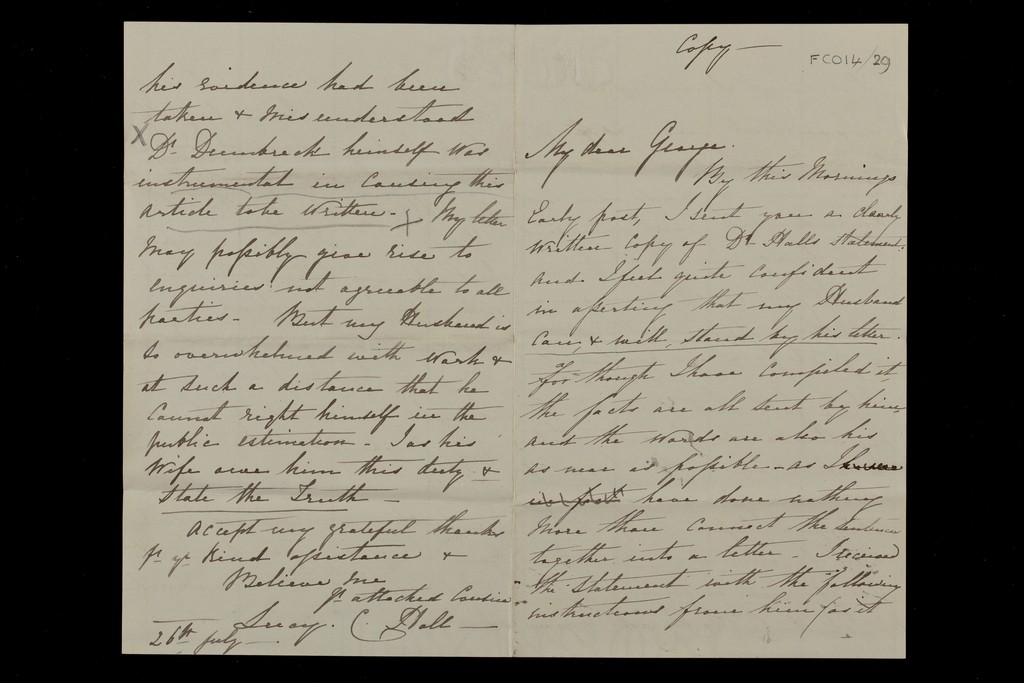 Copy —
FCO14/29
My dear George.
By this Mornings
Early post, I sent you a clearly
written Copy of Dr Halls Statement.
and I feel quite confident
in asserting that my Husband
can, & will, stand by his letter.
For though I have compiled it
the facts are all sent by him
and the words are also his
as near as possible – as I
have done nothing
more than connect the sentences
together into a letter – I received
the statement with the "following
instructions from him "as it
his evidence had been
taken & Misunderstood
X Dr. Dumbreck himself was
instrumental in causing this
article to be written – My letter
may possibly give rise to
enquiries not agreeable to all
parties – But my Husband is
so overwhelmed with work &
at such a distance that he
cannot right himself in the
public estimation – I as his
Wife owe him this duty &
State the Truth —
Accept my grateful thanks
fr yr Kind assistance &
Believe me
yr attached Cousin
Lucy. C. Hall —
26th July —